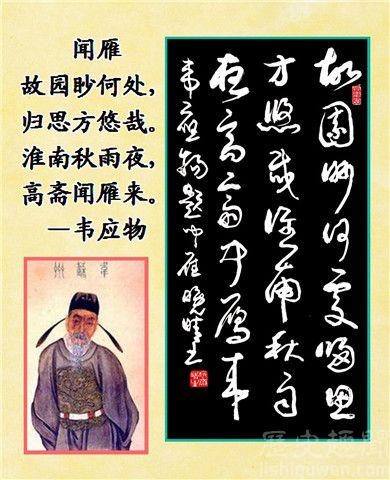 闻雁
故园眇何处,
归思方悠哉。
淮南秋雨夜,
高斋闻雁来。
—韦应物
故園眇何處歸思
方悠哉淮南秋雨
夜高斋闻雁来
韦應物题闻雁
韋蘇州
歷史趣聞
lishiquwen.com